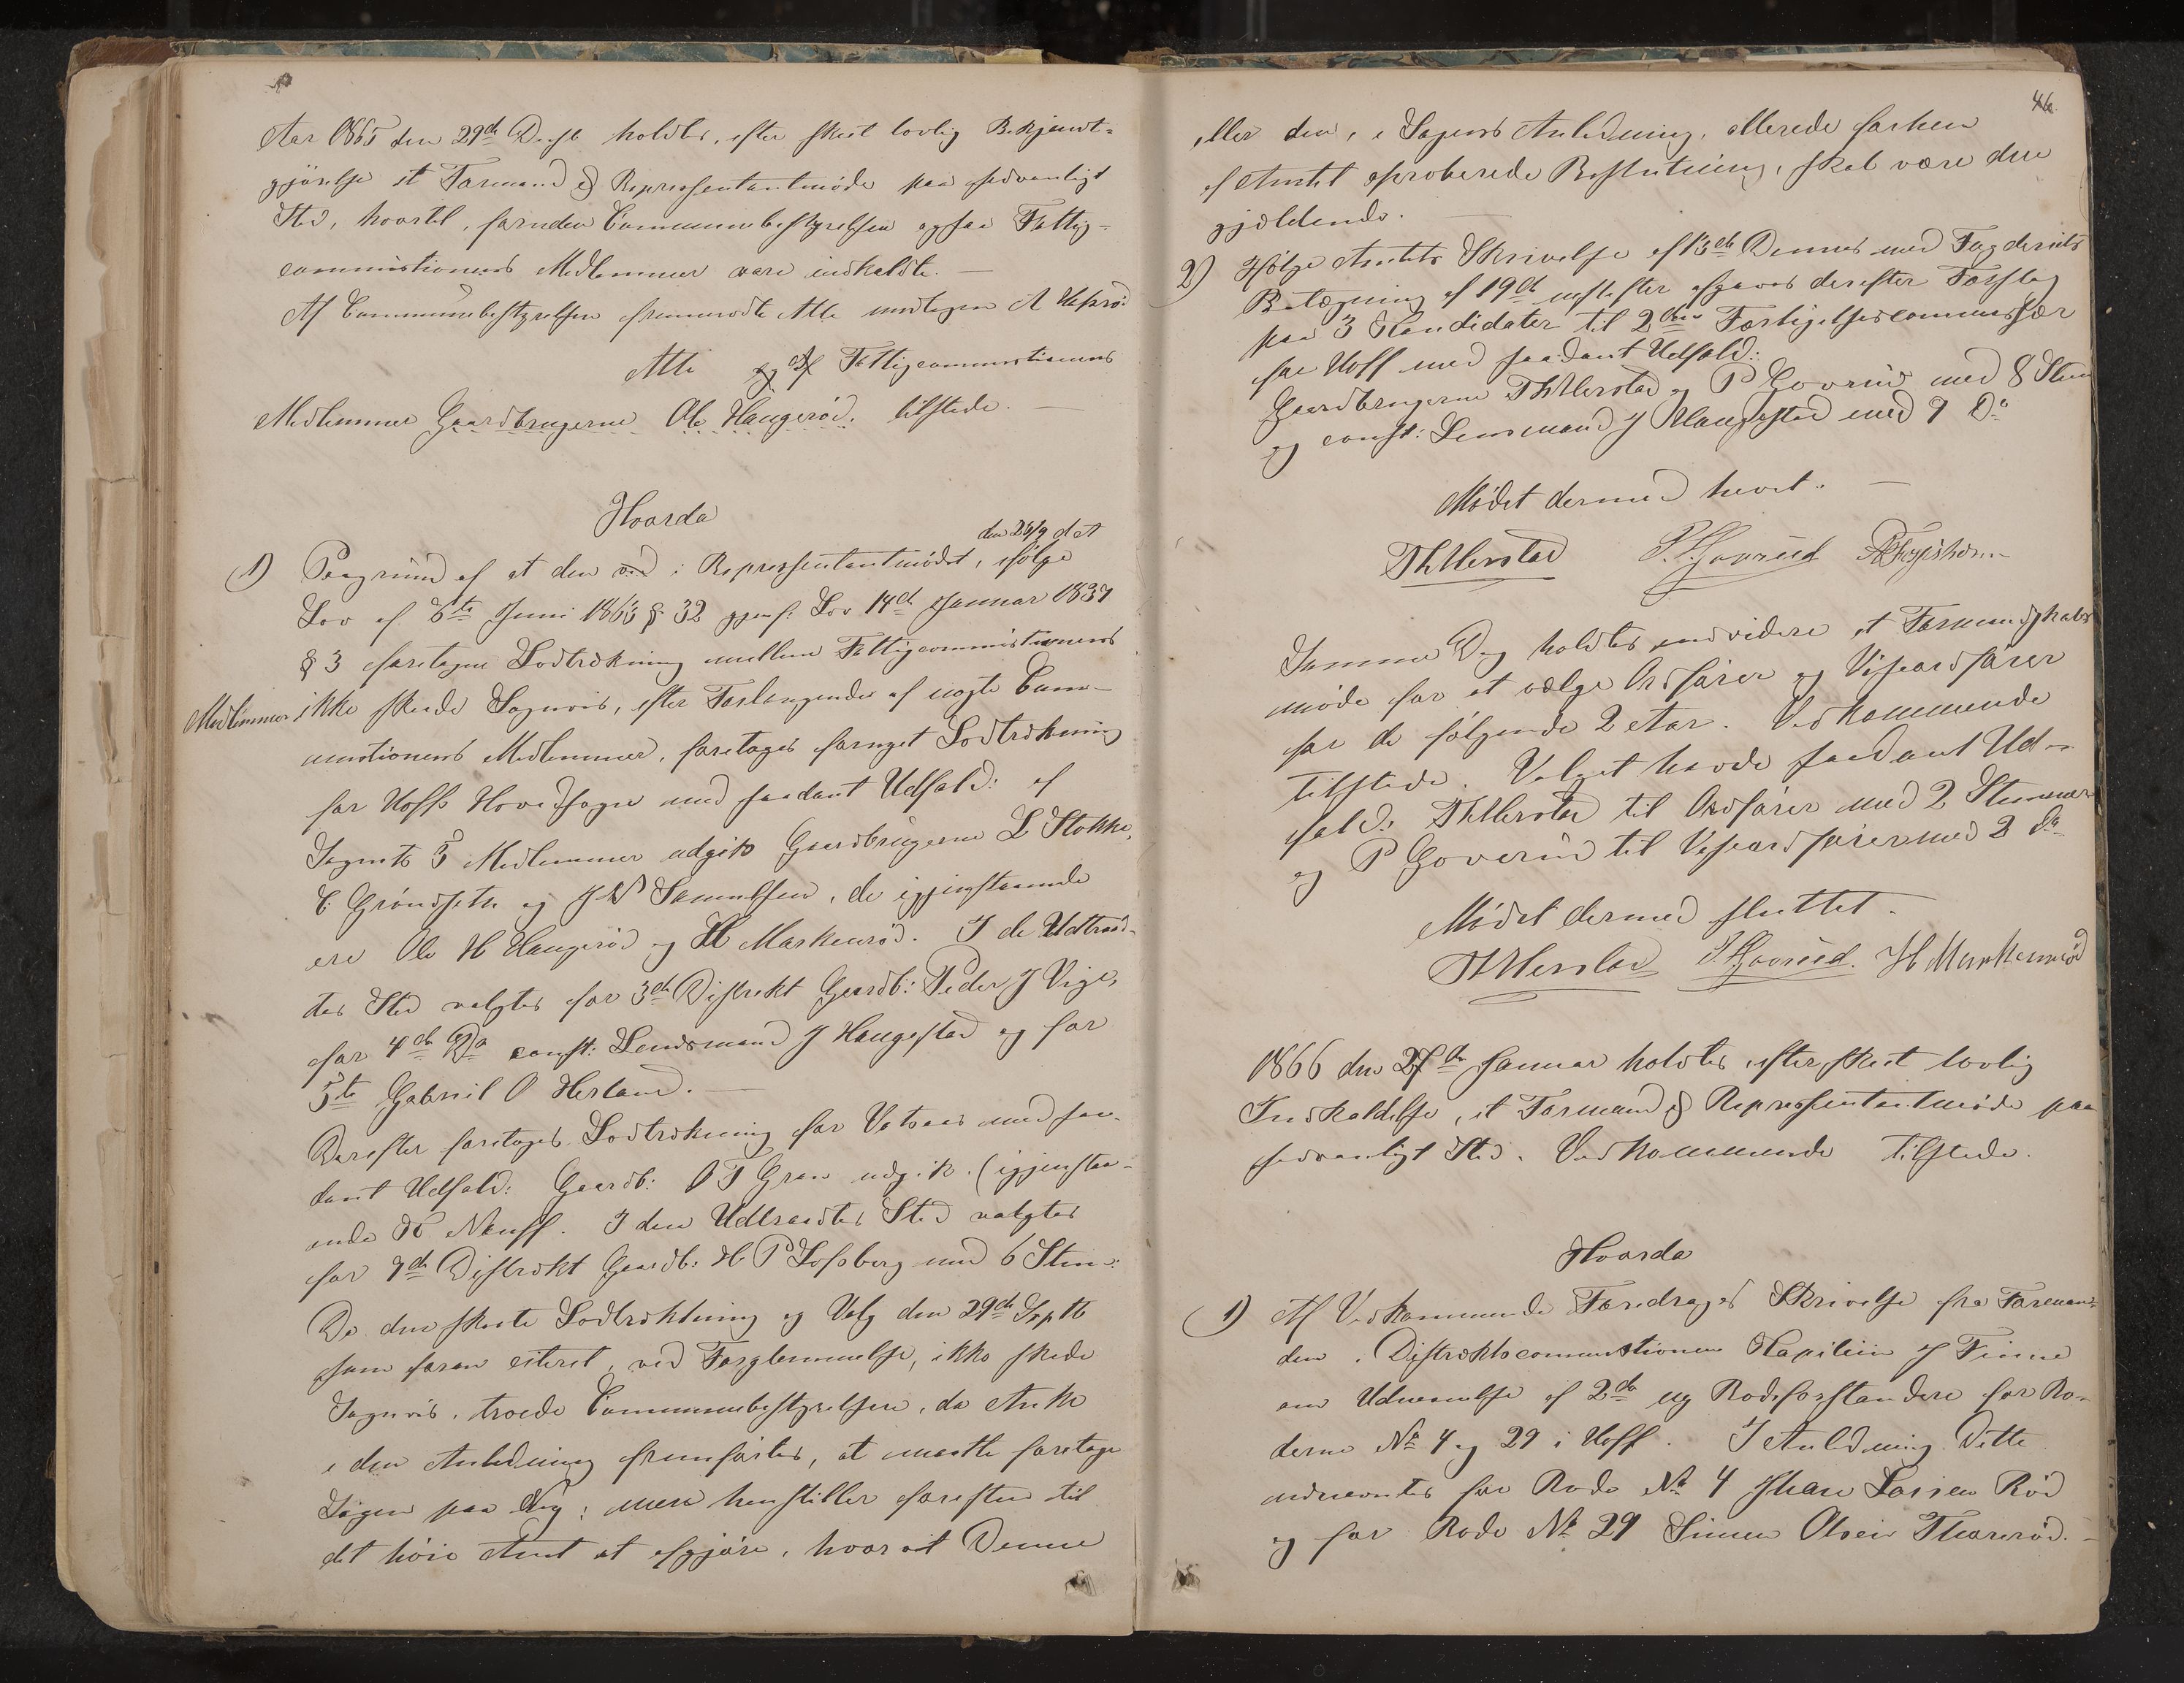 Aar 1865 den 29de Decbr holdtes, efter skeet lovlig Bekjendt=
gjörelse et Formand & Repræsentantmöde paa sædvanligt
Sted, hvortil, foruden Communebestyrelsen ogsaa Fattig=
commissionens Medlemmer vare indkaldte. —
Af Communebestyrelsen fremmødte Alle undtagen A
Alle og af Fattigcommissionens
Medlemmer Gaardbrugerne Ole Haugerød. tilstede. —
Hvorda
den 26/9 d A
1) Paagrund af at den ved i Repræsentantmödet, ifølge
Lov af 6te Juni 1863 § 32 jvnf: Lov 14de Januar 1837
§ 3 foretagne Lodtrekning mellem Fattigcommissionens
Medlemmer ikke skeede Sognevis, efter Forlangende af nogle Com-
missionens Medlemmer, foretoges fornyet Lodtrekning
for Hoffs Hovedsogn med saadant Udfald: af
Sognets 5 Medlemmer udgik Gaardbrugerne L Stokke,
C Gröndseth og J N Samuelsen, de igjenstaaende
ere Ole H Haugerød og H Markenrød. I de Udtraad-
tes Sted valgtes for 3de Distrikt Gaardb: Peder J Vige,
for 4de Do const: Lensmand J Haugestad og for
5te Gabriel O Herland. —
Derefter foretoges Lodtrekning for Vatsaas med saa-
dant Udfald: Gaardb: O T Gran udgik. (igjenstaa-
ende K Nauff. I den Udtraadtes Sted valgtes
for 7de Distrikt Gaardb: H P Lofsberg med 6 Stem:
Da den skeete Lodtrekning og Valg den 29de Septb
som foran citeret, ved Forglemmelse, ikke skede
Sognevis, troede Communebestyrelsen, da Anke
i den Anledning fremførtes, at maatte foretage
Sagen paa Ny; men henstiller forresten til
det höie Amt at afgjöre, hvorvidt Denne
46.
eller den, i Sagens Anledning, allerede forhen
af Amtet aproberede Beslutning, skal være den
gjældende.
2) Ifölge Amtets Skrivelse af 13de Dennes med Fogderiets
Paategning af 19de næstefter afgaves derefter Forslag
paa 3 Kandidater til 2den Forligelsescommissær
for Hoff med saadant Udfald:
Gaardbrugerne Th Herstad og P Goverud med 8 Stem
og const: Lensmand J Haugestad med 7 Do
Mödet dermed hævet. —
Th Herstad P. Goverud
Samme Dag holdtes endvidere et Formandskabs
möde for at vælge Ordförer og Viseordförer
for de fölgende 2 Aar. Vedkommende
tilstede. Valget havde saadant Ud-
fald: Th Herstad til Ordförer med 2 Stemmer
og P Goverud til Viseordförer med 2 Do
Mödet dermed sluttet.
Th Herstad P. Goverud. H Markenrød
1866 den 27de Januar holdtes efter skeet lovlig
Indkaldelse, et Formand & Repræsentantmöde paa
sædvanligt Sted. Vedkommende tilstede.
Hvorda
1) Af Vedkommende Foredroges Skrivelse fra Forman-
den i Distriktscommissionen Kapitein J Finne
om Udnævnelse af 2de ny Rodeforstandere for Ro-
derne No 4 og 29 i Hoff. I Anledning Dette
udnævntes for Rode No 4 Johan Larsen Rød
og for Rode No 29 Simen Olsen Thorerød. —